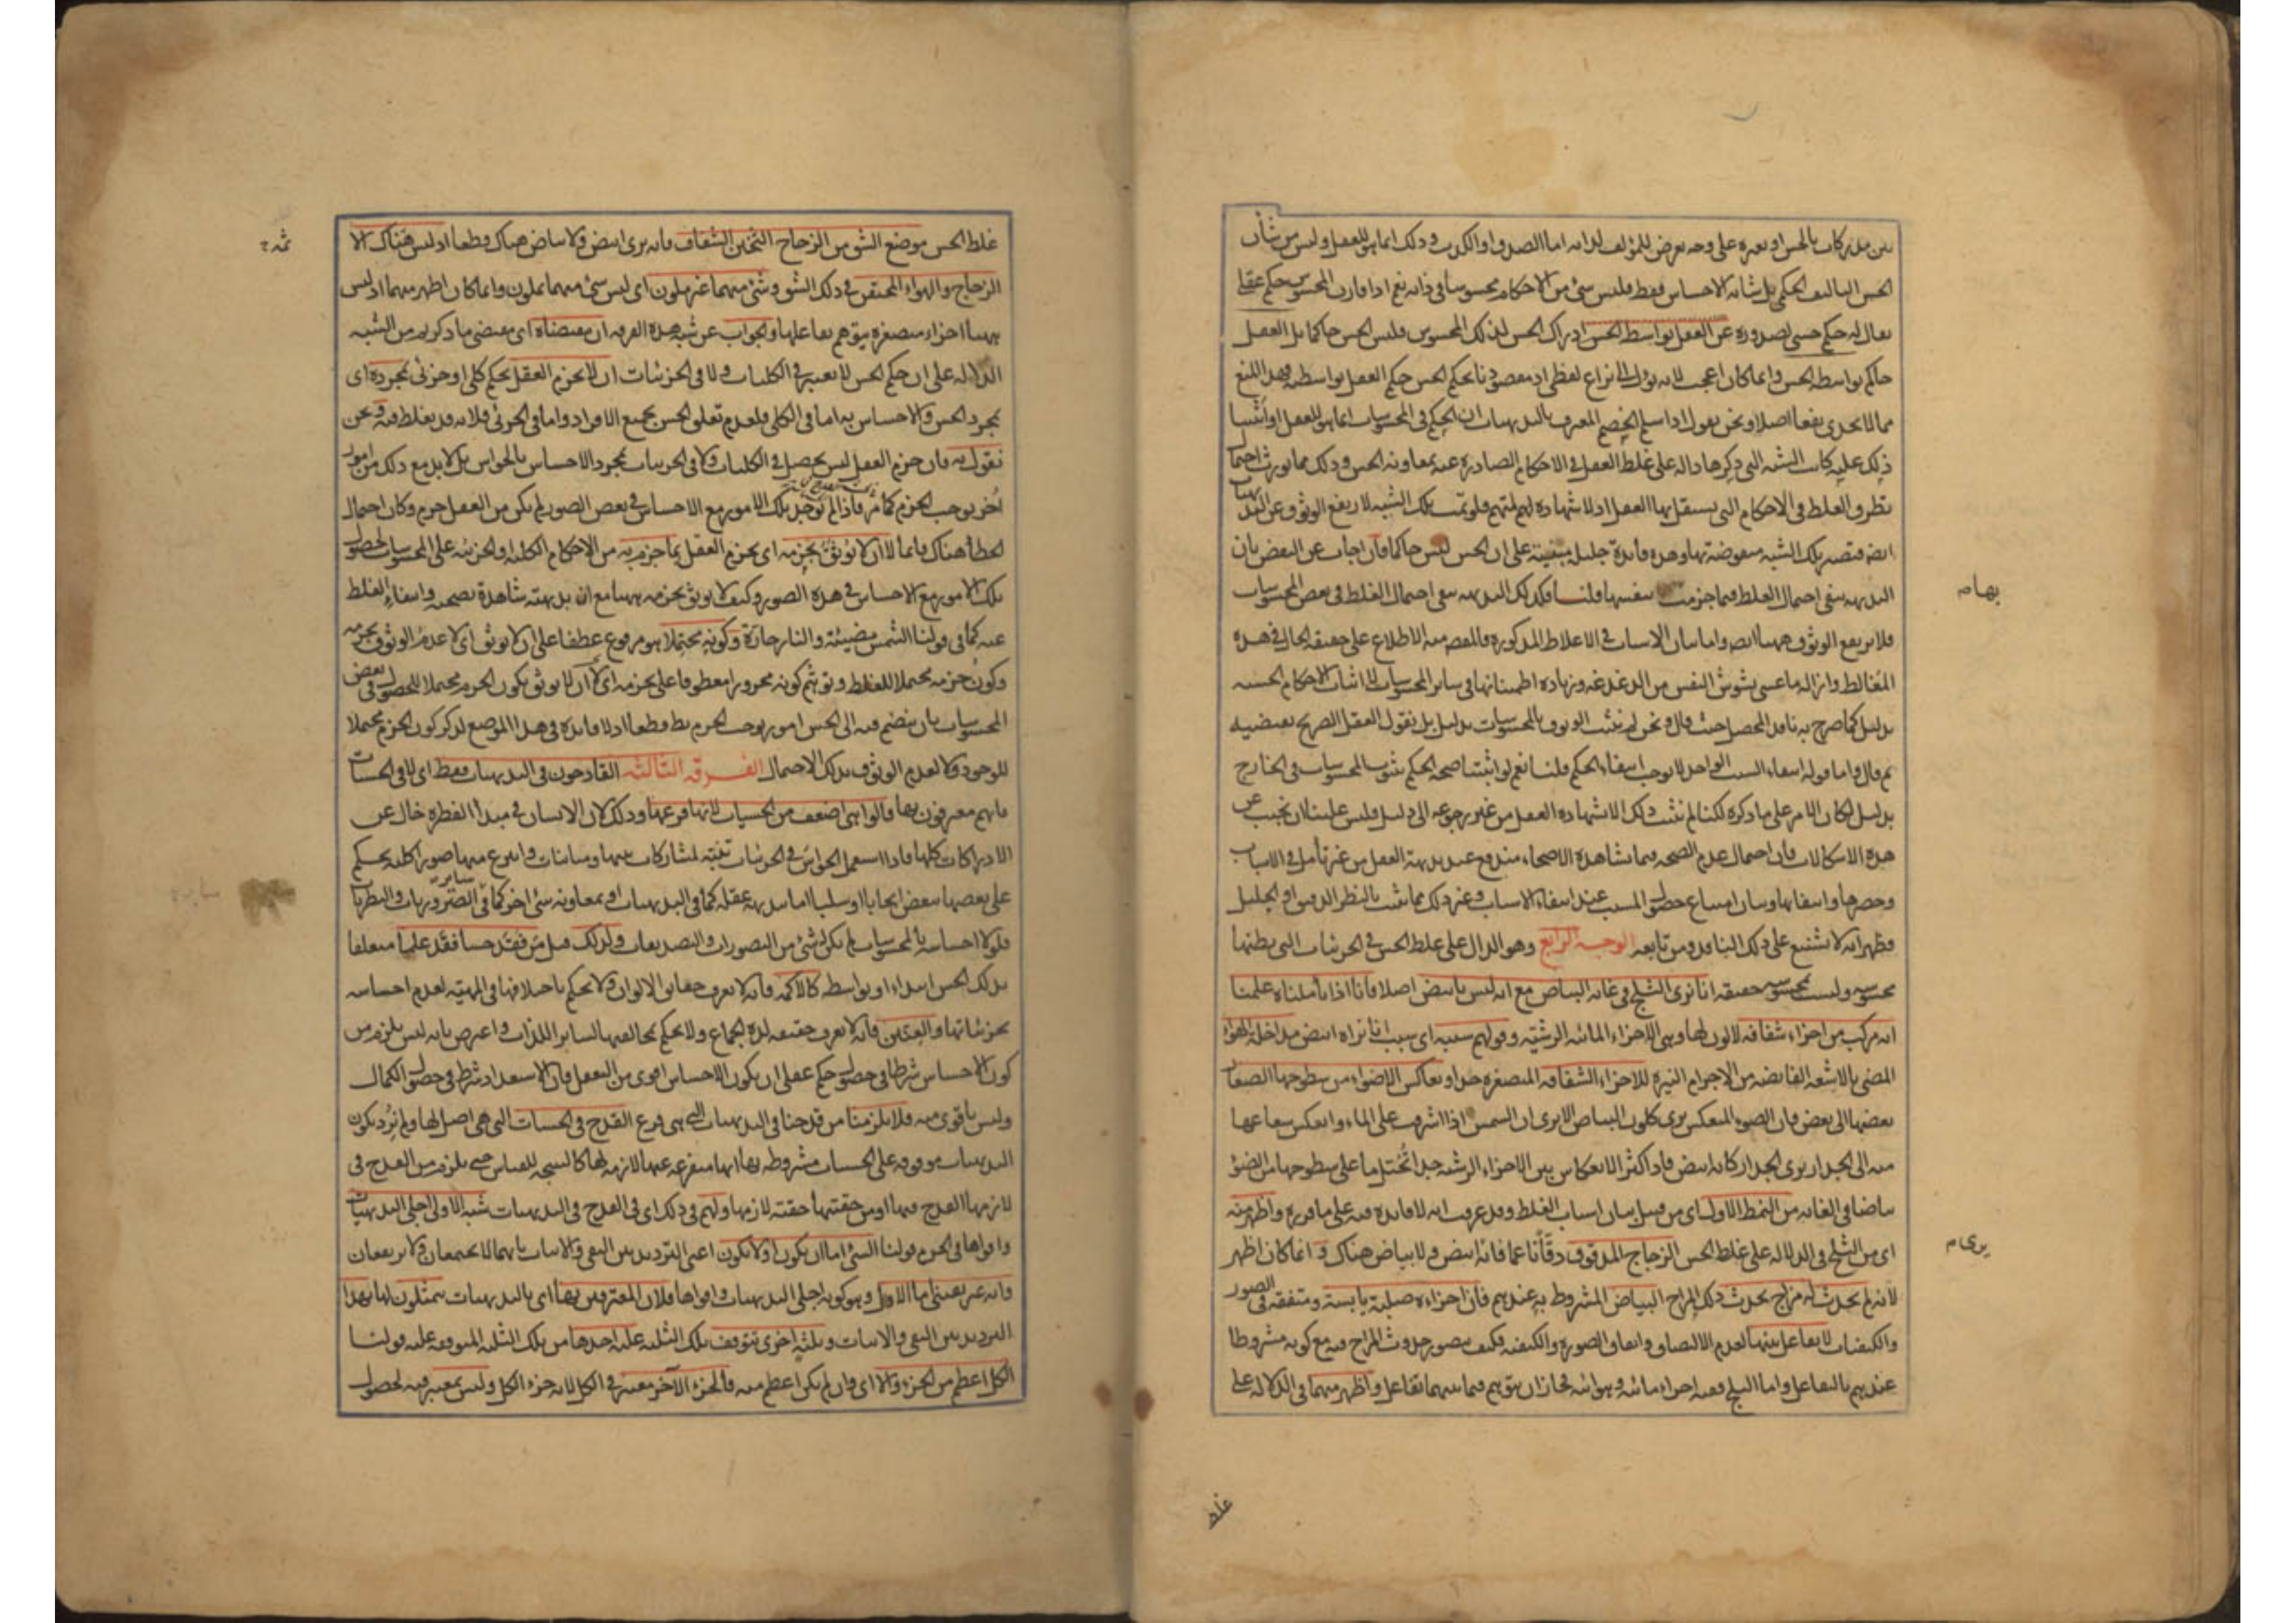 بين مدركات بالحس او بغيره على وجه يعرض للمؤلف لذاته اما الصدق او الكذب وذلك انما هو للعقل وليس من شأن
الحس التأليف الحكمي بل شأنه الاحساس فقط فليس شئ من الاحكام محسوسا في ذاته نعم اذا قارن المحسوس حكم عقلي
يقال له حكم حسي لصدوره عن العقل بواسطة الحس ادراك الحس لذلك المحسوس فليس الحس حاكما بل العقل
حاكم بواسطة الحس وانما كان اعجب لانه يؤل الى نزاع لفظي اذ مقصودنا بحكم الحس حكم العقل بواسطته وهذا النفع
مما لا يجدى نفعا اصلا ونحن نقول اذا سلم الخصم المعرف بالبديهيات ان الحكم في المحسوسات انما هو للعقل
ذلك عليه كانت الشبه التي ذكرها دالة على غلط العقل في الاحكام الصادرة عنه بمعاونة الحس وذلك مما يورث احتمال
تطرق الغلط في الاحكام التي يستقل بها العقل اذ لا شهادة لمتهم فلو تمت تلك الشبه لارتفع الوثوق عن البديهيات
ايضا فتصير تلك الشبه منقوضة بها وهذه فائدة جليلة مبنية على ان الحس ليس حاكما فان اجاب عن النقض بان
البديهة تنفي احتمال الغلط فيما جزمت بنفسها قلنا فكذلك البديهة تنفي احتمال الغلط في بعض المحسوسات
فلا يرتفع الوثوق ههنا ايضا واما بيان الاسباب في الاغلاط المذكورة فالمقصود منه الاطلاع على حقيقة الحال في هذه
المغالط وازالة ما عسى يشوش النفس من الدغدغة وزيادة اطمئنانها في سائر المحسوسات لا اثبات الاحكام الحسية
بدليل كما صرح به ناقد المحصل حيث قال ونحن لم نثبت الوثوق بالمحسوسات بدليل بل نقول العقل الصريح يقتضيه
ثم قال واما قوله انتفاء السبب الواحد لا يوجب انتفاء الحكم قلنا نعم لو اثبتنا صحة الحكم بثبوت المحسوسات في الخارج
بدليل لكان الامر على ما ذكره لكنا لم نثبت ذلك الا بشهادة العقل من غير رجوعه الى دليل فليس علينا ان نجيب عن
هذه الاشكالات فان احتمال عدم الصحة فيما يشاهده الاصحاء مندفع عند بديهة العقل من غير تأمل في الاسباب
وحصرها وانتفائها وبيان امتناع حصول المسبب عند انتفاء الاسباب وغير ذلك مما يثبت بالنظر الدقيق او الجليل
فظهر انه لا تشنيع على ذلك الناقد ومن تابعه الوجه الرابع وهو الدال على غلط الحس في الجزئيات التي يظنها
محسوسة وليست محسوسة حقيقة انا نرى الثلج في غاية البياض مع انه ليس بابيض اصلا فانا اذا تأملناه علمنا
انه مركب من اجزاء شفافة لا لون لها وهي الاجزاء المائية الرشية وقولهم سببه اى سبب انا نراه ابيض مداخلة الهواء
المضئ بالاشعة الفائضة من الاجرام النيرة للاجزاء الشفافة المتصغرة جدا وتعاكس الاضواء من سطوحها الصغار
بعضها الى بعض فان الضوء المنعكس يرى كلون البياض الا يرى ان الشمس اذا اشرقت على الماء وانعكس شعاعها
منه الى الجدار يرى الجدار كانه ابيض فاذا كثر الانعكاس بين الاجزاء الرشية جدا تخيل ما على سطوحها من الضوء
بياضا في الغاية من النمط الاول اى من قبيل بيان اسباب الغلط وقد عرفت انه لا فائدة فيه على ما قرره واظهر منه
اى من الثلج في الدلالة على غلط الحس الزجاج المدقوق دقا ناعما فانه ابيض ولا بياض هناك وانما كان اظهر
لانه لم يحدث له مزاج يحدث ذلك المزاج البياض المشروط به عندهم فان اجزاءه صلبة يابسة ومتفقة في الصور
والكيفيات لا تفاعل بينها لعدم الالتصاق واتفاق الصورة والكيفية فكيف يتصور حدوث المزاج فيه مع كونه مشروطا
عندهم بالتفاعل واما الثلج ففيه اجزاء مائية وهوائية فجاز ان يتوهم فيما بينهما تفاعل واظهر منهما في الدلالة على
بهام
يرى م
غلط
غلط الحس موضع الشق من الزجاج الثخين الشفاف فانه يرى ابيض ولا بياض هناك قطعا اذ ليس هناك الا
الزجاج والهواء المحتقن في ذلك الشق وشئ منهما غير ملون اى ليس شئ منهما بملون وانما كان اظهر منهما اذ ليس
ههنا اجزاء متصغرة يتوهم تفاعلها والجواب عن شبه هذه الفرقة ان مقتضاه اى مقتضى ما ذكرتم من الشبه
الدالة على ان حكم الحس لا يعتبر في الكليات ولا في الجزئيات ان لا يجزم العقل بحكم كلي او جزئي بمجرده اى
بمجرد الحس والاحساس به اما في الكلي فلعدم تعلق الحس بجميع الافراد واما في الجزئي فلانه قد يغلط فيه ونحن
نقول به فان جزم العقل ليس يحصل في الكليات ولا في الجزئيات بمجرد الاحساس بالحواس بل لا بد مع ذلك من امور
اخر يوجب الجزم كما مر فاذا لم توجد تلك الامور مع الاحساس في بعض الصور لم يكن من العقل جزم وكان احتمال
الخطأ هناك قائما لا ان لا يوثق بجزمه اى بجزم العقل بما جزم به من الاحكام الكلية او الجزئية على المحسوسات لحصول
تلك الامور مع الاحساس في هذه الصور وكيف لا يوثق بجزمه ههنا مع ان بديهته شاهدة بصحته وانتفاء الغلط
عنه كما في قولنا الشمس مضيئة والنار حارة وكونه محتملا هو مرفوع عطفا على ان لا يوثق اى لا عدم الوثوق بجزمه
وكون جزمه محتملا للغلط وتوهم كونه مجرورا معطوفا على بجزمه اى لا ان لا يوثق بكون الجزم محتملا للحصول في بعض
المحسوسات بان ينضم فيه الى الحس امور يوجب الجزم بط قطعا اذ لا فائدة في هذا الموضع لذكر كون الجزم محتملا
للوجود ولا لعدم الوثوق بذلك الاحتمال الفرقة الثالثة القادحون في البديهيات فقط اى لا في الحسيات
فانهم معترفون بها قالوا هي اضعف من الحسيات لانها فرعها وذلك لان الانسان في مبدأ الفطرة خال عن
الادراكات كلها فاذا استعمل الحواس في الجزئيات تنبه لمشاركات بينها ومباينات وانتزع منها صورا كلية يحكم
على بعضها ببعض ايجابا او سلبا اما ببديهة عقله كما في البديهيات او بمعاونة شئ اخر كما في سائر الضروريات والنظريات
فلولا احساسه بالمحسوسات لم يكن له شئ من التصورات والتصديقات ولذلك قيل من فقد حسا فقد علما متعلقا
بذلك الحس ابتداء او بواسطة كالاكمه فانه لا يعرف حقائق الالوان ولا يحكم باختلافها في المهية لعدم احساسه
بجزئياتها والعنين فانه لا يعرف حقيقة لذة الجماع ولا يحكم بمخالفتها لسائر اللذات واعترض بانه ليس يلزم من
كون الاحساس شرطا في حصول حكم عقلي ان يكون الاحساس اقوى من التعقل فان الاستعداد شرط في حصول الكمال
وليس باقوى منه فلا يلزمنا من قدحنا في البديهيات التي هي فرع القدح في الحسيات التي هي اصل لها ولم نرد بكون
البديهيات موقوفة على الحسيات مشروطة بها انها متفرعة عنها لازمة لها كالنتيجة للقياس حتى يلزم من القدح في
لازمها القدح فيها او من حقيتها حقية لازمها ولهم في ذلك اى في القدح في البديهيات شبه الاولى اجلى البديهيات
واقواها في الجزم قولنا الشئ اما ان يكون او لا يكون اعنى الترديد بين النفي والاثبات بانهما لا يجتمعان ولا يرتفعان
وانه غير يقيني اما الاول وهو كونه اجلى البديهيات واقواها فلان المعترفين بها اى بالبديهيات يمثلون لها بهذا
الترديد بين النفي والاثبات وبثلثة اخرى تتوقف تلك الثلثة عليه احدها من تلك الثلثة المتوقفة عليه قولنا
الكل اعظم من الجزء والا اى وان لم يكن اعظم منه فالجزء الآخر معتبر في الكل لانه جزء الكل وليس بمعتبر فيه لحصول